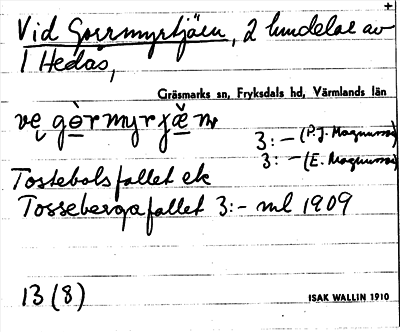 Vid Gorrmyrtjärn, 2 hundelar av
1 Hedås,
Gräsmarks sn, Fryksdals hd, Värmlands län
3:- (P.J. Magnusson)
3:- (E. Magnusson)
Tostebolsfallet ek
Tossebergafallet 3:- ml 1909
13 (8)
ISAK WALLIN 1910